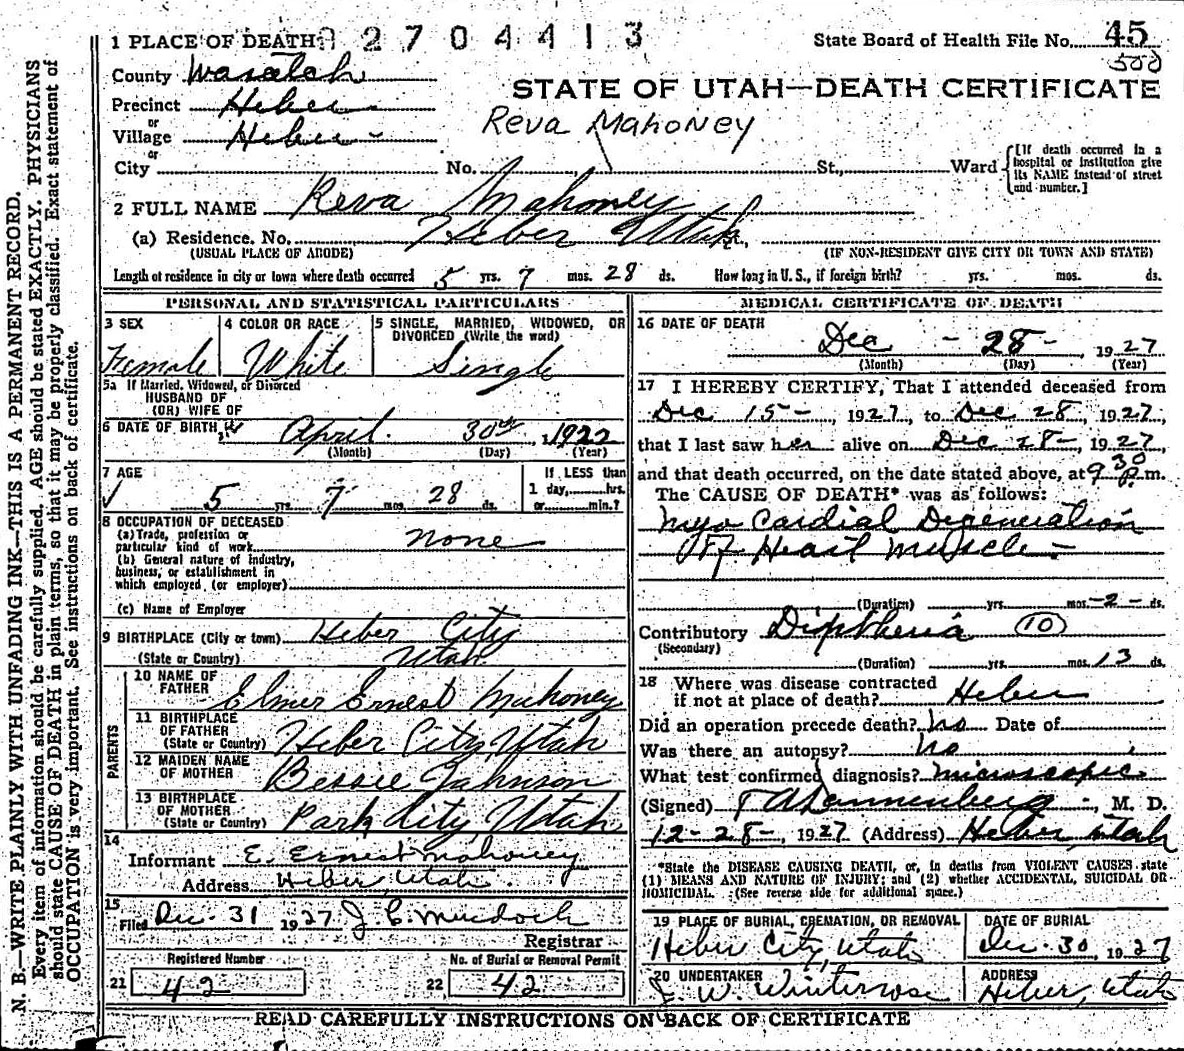 1 PLACE OF DEATH 2704413
State Board of Health File No. 45
500
County Wasatch
STATE OF UTAH—DEATH CERTIFICATE
Precinct Heber
or
Village Heber
Reva Mahoney
or
City No. St., Ward
[If death occurred in a hospital or institution give its NAME instead of street and number.]
2 FULL NAME Reva Mahoney
(a) Residence. No. Heber Utah St.,
(USUAL PLACE OF ABODE) (IF NON-RESIDENT GIVE CITY OR TOWN AND STATE)
Length of residence in city or town where death occurred 5 yrs. 7 mos. 28 ds. How long in U. S., if foreign birth? yrs. mos. ds.
PERSONAL AND STATISTICAL PARTICULARS
3 SEX 4 COLOR OR RACE 5 SINGLE, MARRIED, WIDOWED, OR DIVORCED (Write the word)
Female White Single
5a If Married, Widowed, or Divorced
HUSBAND OF
(OR) WIFE OF
6 DATE OF BIRTH April 30 1922
(Month) (Day) (Year)
7 AGE If LESS than
5 yrs. 7 mos. 28 ds. 1 day, hrs.
or min.?
8 OCCUPATION OF DECEASED
(a) Trade, profession or
particular kind of work None
(b) General nature of industry,
business, or establishment in
which employed (or employer)
(c) Name of Employer
9 BIRTHPLACE (City or town) Heber City
(State or Country) Utah
PARENTS
10 NAME OF FATHER Elmer Ernest Mahoney
11 BIRTHPLACE OF FATHER (State or Country) Heber City Utah
12 MAIDEN NAME OF MOTHER Bessie Johnson
13 BIRTHPLACE OF MOTHER (State or Country) Park City Utah
14
Informant E. Ernest Mahoney
Address Heber, Utah
15
Filed Dec. 31 1927 J. C. Murdoch
Registrar
Registered Number No. of Burial or Removal Permit
21 42 22 42
MEDICAL CERTIFICATE OF DEATH
16 DATE OF DEATH
Dec - 28 - , 1927
(Month) (Day) (Year)
17 I HEREBY CERTIFY, That I attended deceased from
Dec 15 - , 1927, to Dec 28, 1927,
that I last saw her alive on Dec 28 - , 1927,
and that death occurred, on the date stated above, at 9 30 P. m.
The CAUSE OF DEATH* was as follows:
Myo Cardial Degeneration
of Heart Muscle -
(Duration) yrs. mos. - 2 - ds.
Contributory Diptheria 10
(Secondary)
(Duration) yrs. mos. 13 ds.
18 Where was disease contracted
if not at place of death? Heber
Did an operation precede death? No Date of
Was there an autopsy? No
What test confirmed diagnosis? Microscopic
(Signed) Dannenberg, M. D.
12-28-, 1927 (Address) Heber, Utah
*State the DISEASE CAUSING DEATH, or, in deaths from VIOLENT CAUSES, state
(1) MEANS AND NATURE OF INJURY; and (2) whether ACCIDENTAL, SUICIDAL OR
HOMICIDAL. (See reverse side for additional space.)
19 PLACE OF BURIAL, CREMATION, OR REMOVAL DATE OF BURIAL
Heber City, Utah Dec. 30, 1927
20 UNDERTAKER ADDRESS
J. W. Winterose Heber, Utah
READ CAREFULLY INSTRUCTIONS ON BACK OF CERTIFICATE
N. B.—WRITE PLAINLY WITH UNFADING INK—THIS IS A PERMANENT RECORD.
Every item of information should be carefully supplied. AGE should be stated EXACTLY. PHYSICIANS
should state CAUSE OF DEATH in plain terms, so that it may be properly classified. Exact statement of
OCCUPATION is very important. See instructions on back of certificate.